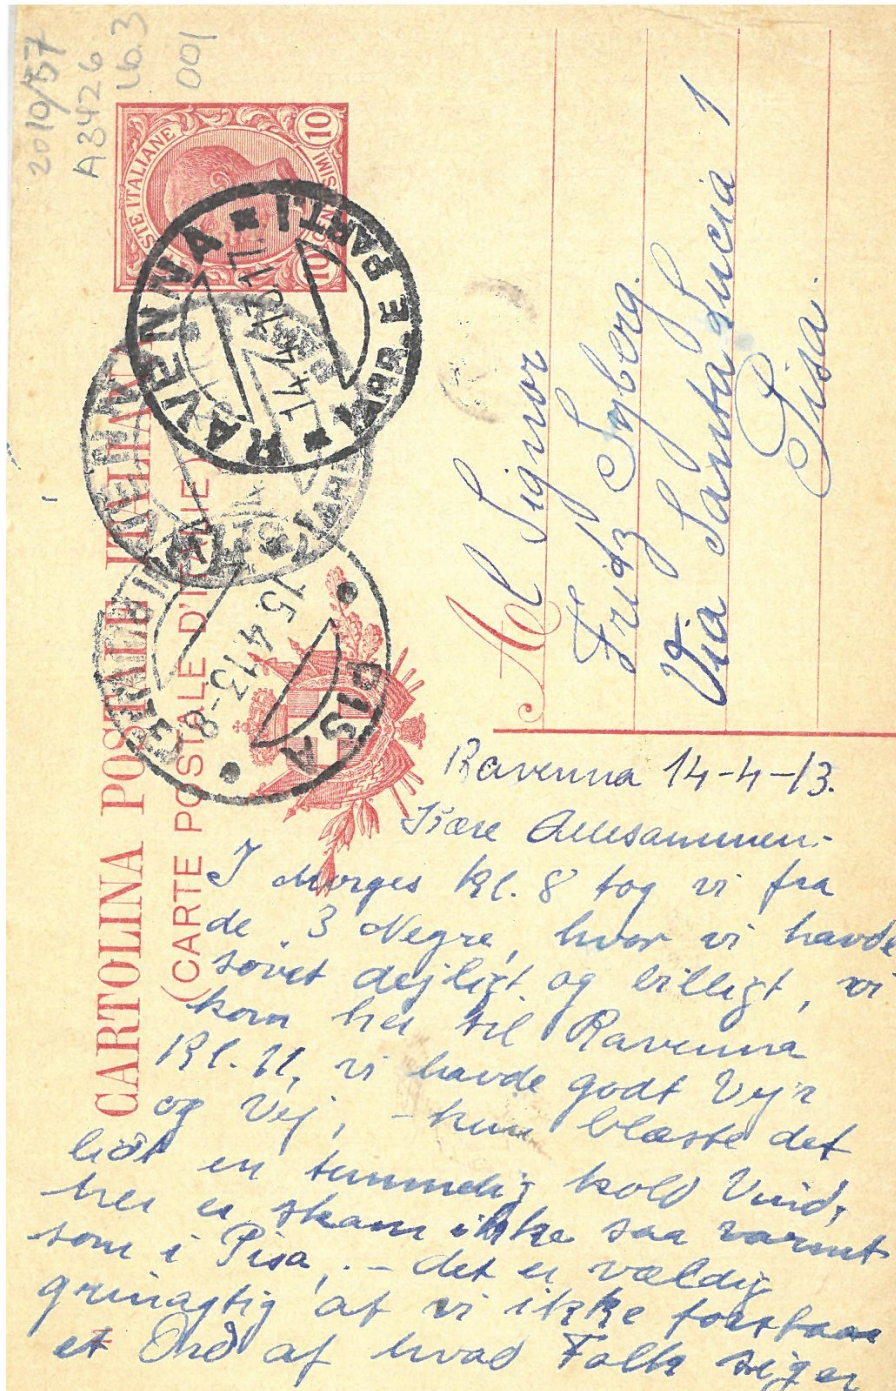 2010/57
A3426
Lb.3
001
POSTE ITALIANE
10 CENTESIMI 10
CARTOLINA POSTALE ITALIANA
(CARTE POSTALE D'ITALIE)
RAVENNA
ARR. E PART.
14.4.13 17
PISA
15.4.13-8
Al Signor
Fritz Syberg.
Via Santa Lucia 1
Pisa.
Ravenna 14-4-13.
Kære Allesammen.
I Morges Kl. 8 tog vi fra
de 3 Negre, hvor vi havde
sovet dejligt og billigt, vi
kom her til Ravenna
Kl. 11, vi havde godt Vejr
og Vej, – kun blæste det
lidt en temmelig kold Vind,
her er skam ikke saa varmt
som i Pisa, – det er vældig
grinagtig at vi ikke forstaar
et Ord af hvad Folk siger